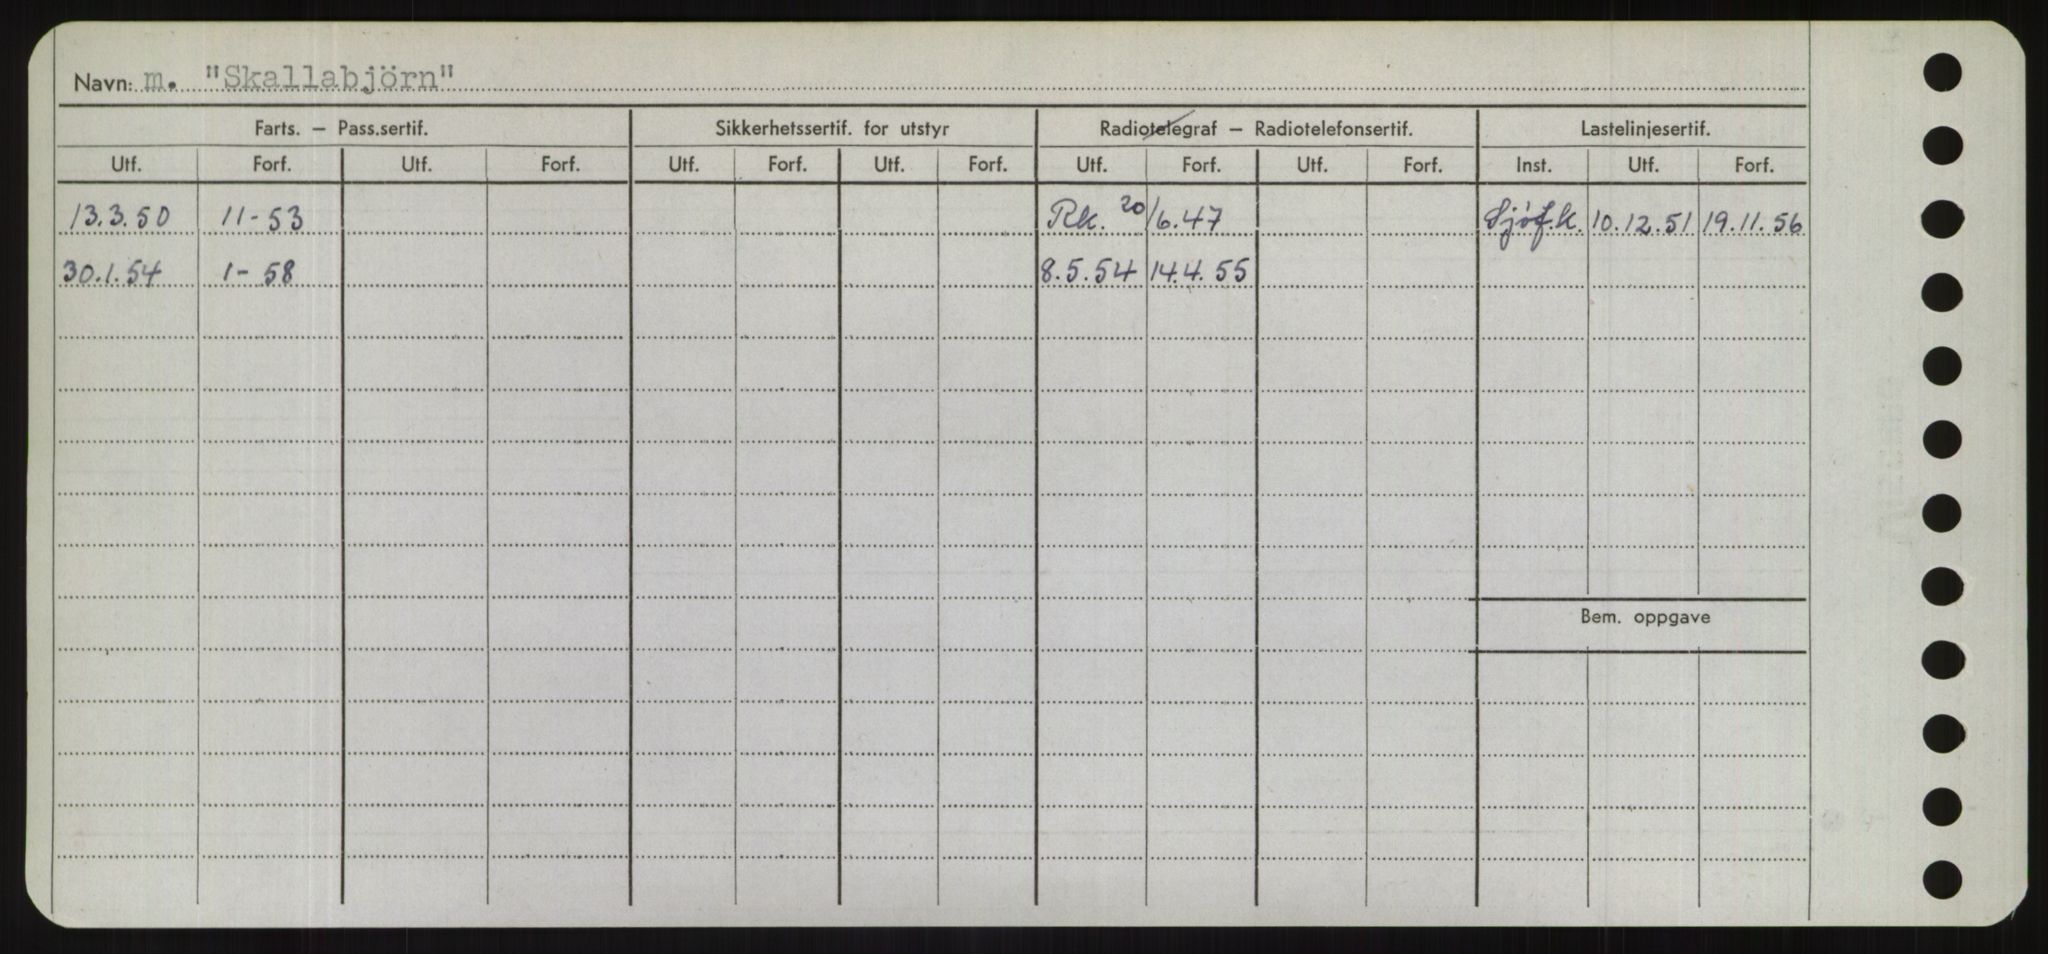 Navn: m. "Skallabjörn"
Farts. – Pass.sertif. Sikkerhetssertif. for utstyr Radiotelegraf – Radiotelefonsertif. Lastelinjesertif.
Utf. Forf. Utf. Forf. Utf. Forf. Utf. Forf. Utf. Forf. Utf. Forf. Inst. Utf. Forf.
13.3.50 11-53 Rk. 20/6.47 Sjöf.k. 10.12.51 19.11.56
30.1.54 1-58 8.5.54 14.4.55
Bem. oppgave